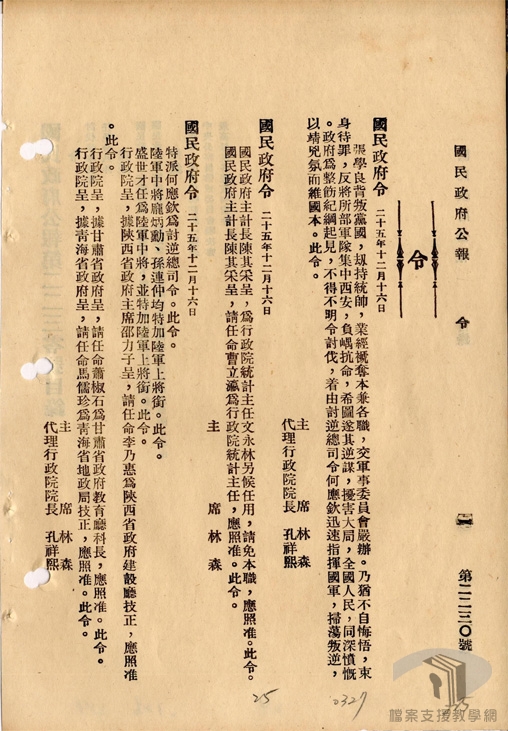 國民政府公報　令
第二二三〇號
令
國民政府令　二十五年十二月十六日
張學良背叛黨國，刼持統帥，業經褫奪本兼各職，交軍事委員會嚴辦。乃猶不自悔悟，束
身待罪，反將所部軍隊集中西安，負嵎抗命，希圖遂其逆謀，擾害大局，全國人民，同深憤慨
。政府為整飭紀綱起見，不得不明令討伐，着由討逆總司令何應欽迅速指揮國軍，掃蕩叛逆，
以靖兇氛而維國本。此令。
主席　林森
代理行政院院長　孔祥熙
國民政府令　二十五年十二月十六日
國民政府主計長陳其采呈，為行政院統計主任文永林另候任用，請免本職，應照准。此令。
國民政府主計長陳其采呈，請任命曹立瀛為行政院統計主任，應照准。此令。
主席　林森
國民政府令　二十五年十二月十六日
特派何應欽為討逆總司令。此令。
陸軍中將龐炳勳，孫連仲均特加陸軍上將銜。此令。
盛世才任為陸軍中將，並特加陸軍上將銜。此令。
行政院呈，據陝西省政府主席邵力子呈，請任命李乃惠為陝西省政府建設廳技正，應照准
。此令。
行政院呈，據甘肅省政府呈，請任命蕭椒石為甘肅省政府教育廳科長，應照准。此令。
行政院呈，據青海省政府呈，請任命馬儒珍為青海省地政局技正，應照准。此令。
主席　林森
代理行政院院長　孔祥熙
25
0327
檔案支援教學網